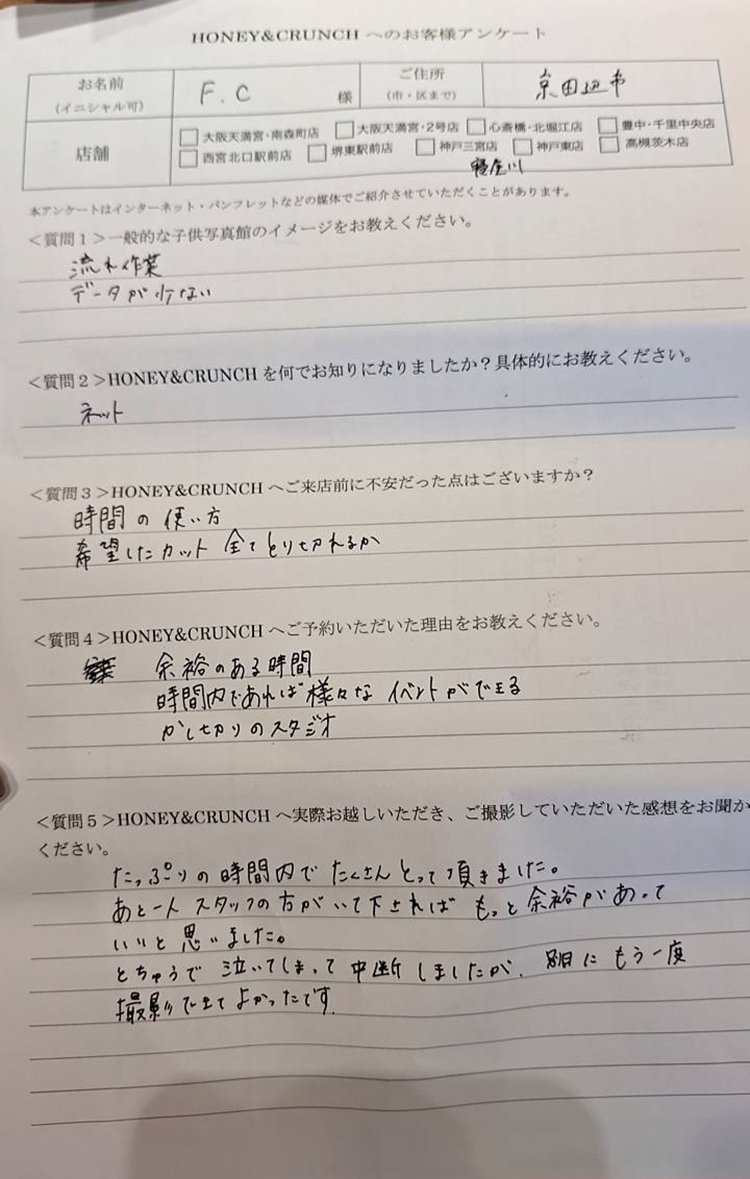 HONEY&CRUNCH へのお客様アンケート
お名前
(イニシャル可)
F.C 様
ご住所
(市・区まで)
京田辺市
店舗
□ 大阪天満宮・南森町店 □ 大阪天満宮・2号店 □ 心斎橋・北堀江店 □ 豊中・千里中央店
□ 西宮北口駅前店 □ 堺東駅前店 □ 神戸三宮店 □ 神戸東店 □ 高槻茨木店
寝屋川
本アンケートはインターネット・パンフレットなどの媒体でご紹介させていただくことがあります。
＜質問1＞一般的な子供写真館のイメージをお教えください。
流れ作業
データが少ない
＜質問2＞HONEY&CRUNCH を何でお知りになりましたか？具体的にお教えください。
ネット
＜質問3＞HONEY&CRUNCH へご来店前に不安だった点はございますか？
時間の使い方
希望したカット 全てとり切れるか
＜質問4＞HONEY&CRUNCH へご予約いただいた理由をお教えください。
余裕のある時間
時間内であれば様々なイベントができる
かし切りのスタジオ
＜質問5＞HONEY&CRUNCH へ実際お越しいただき、ご撮影していただいた感想をお聞か
ください。
たっぷりの時間内で たくさんとって頂きました。
あと一人 スタッフの方がいて下されば もっと余裕があって
いいと思いました。
とちゅうで 泣いてしまって 中断しましたが、別日にもう一度
撮影できてよかったです。